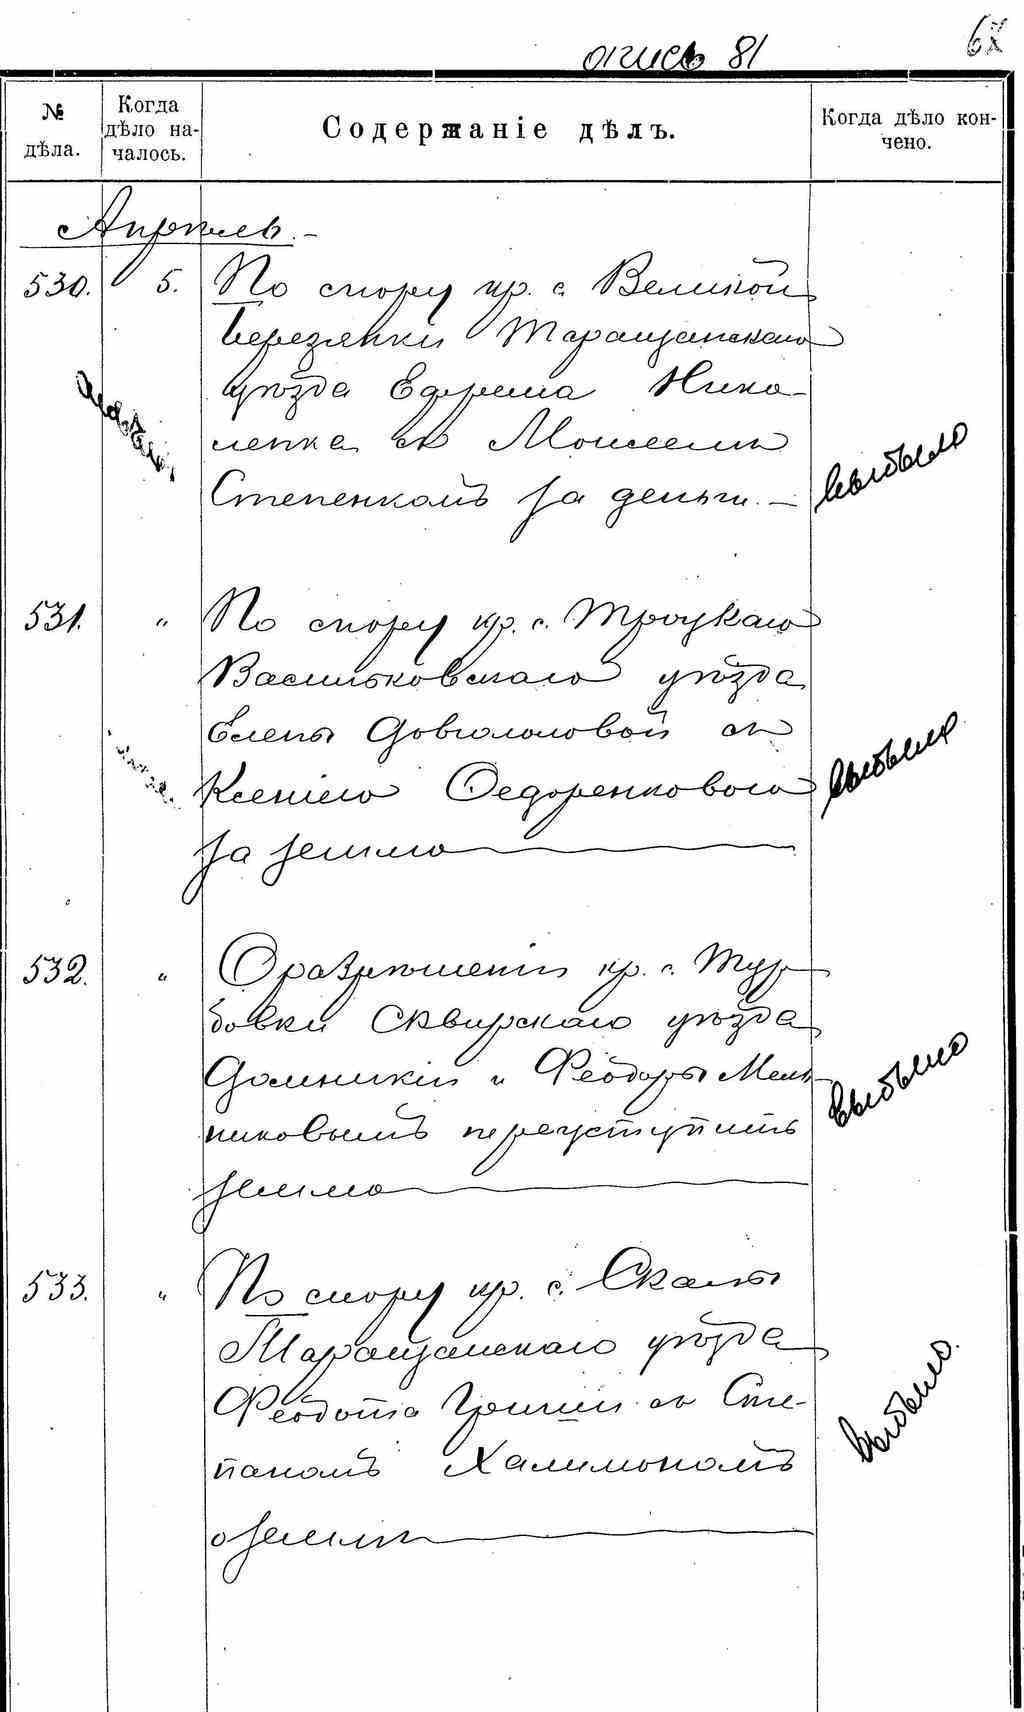 опись 81
67
№ дѣла.
Когда дѣло на-
чалось.
Содержаніе дѣлъ.
Когда дѣло кон-
чено.
Апрѣль.
530. 5. По спору кр. с. Великой
Березянки Таращанскаго
уѣзда Ефрема Нико-
ленка съ Моисеемъ
Степенкомъ за деньги. —
выбыло
531. " По спору кр. с. Троцкаго
Васильковскаго уѣзда
Елены Довгополовой съ
Ксеніею Федоренковою
за землю
выбыло
532. " О разрѣшеніи кр. с. Тур-
бовки Сквирскаго уѣзда
Домникіи и Феодоры Мель-
никовымъ переуступить
землю
выбыло
533. " По спору кр. с. Скалы
Таращанскаго уѣзда
Феодота съ Сте-
паномъ Халимономъ
о землѣ
выбыло.